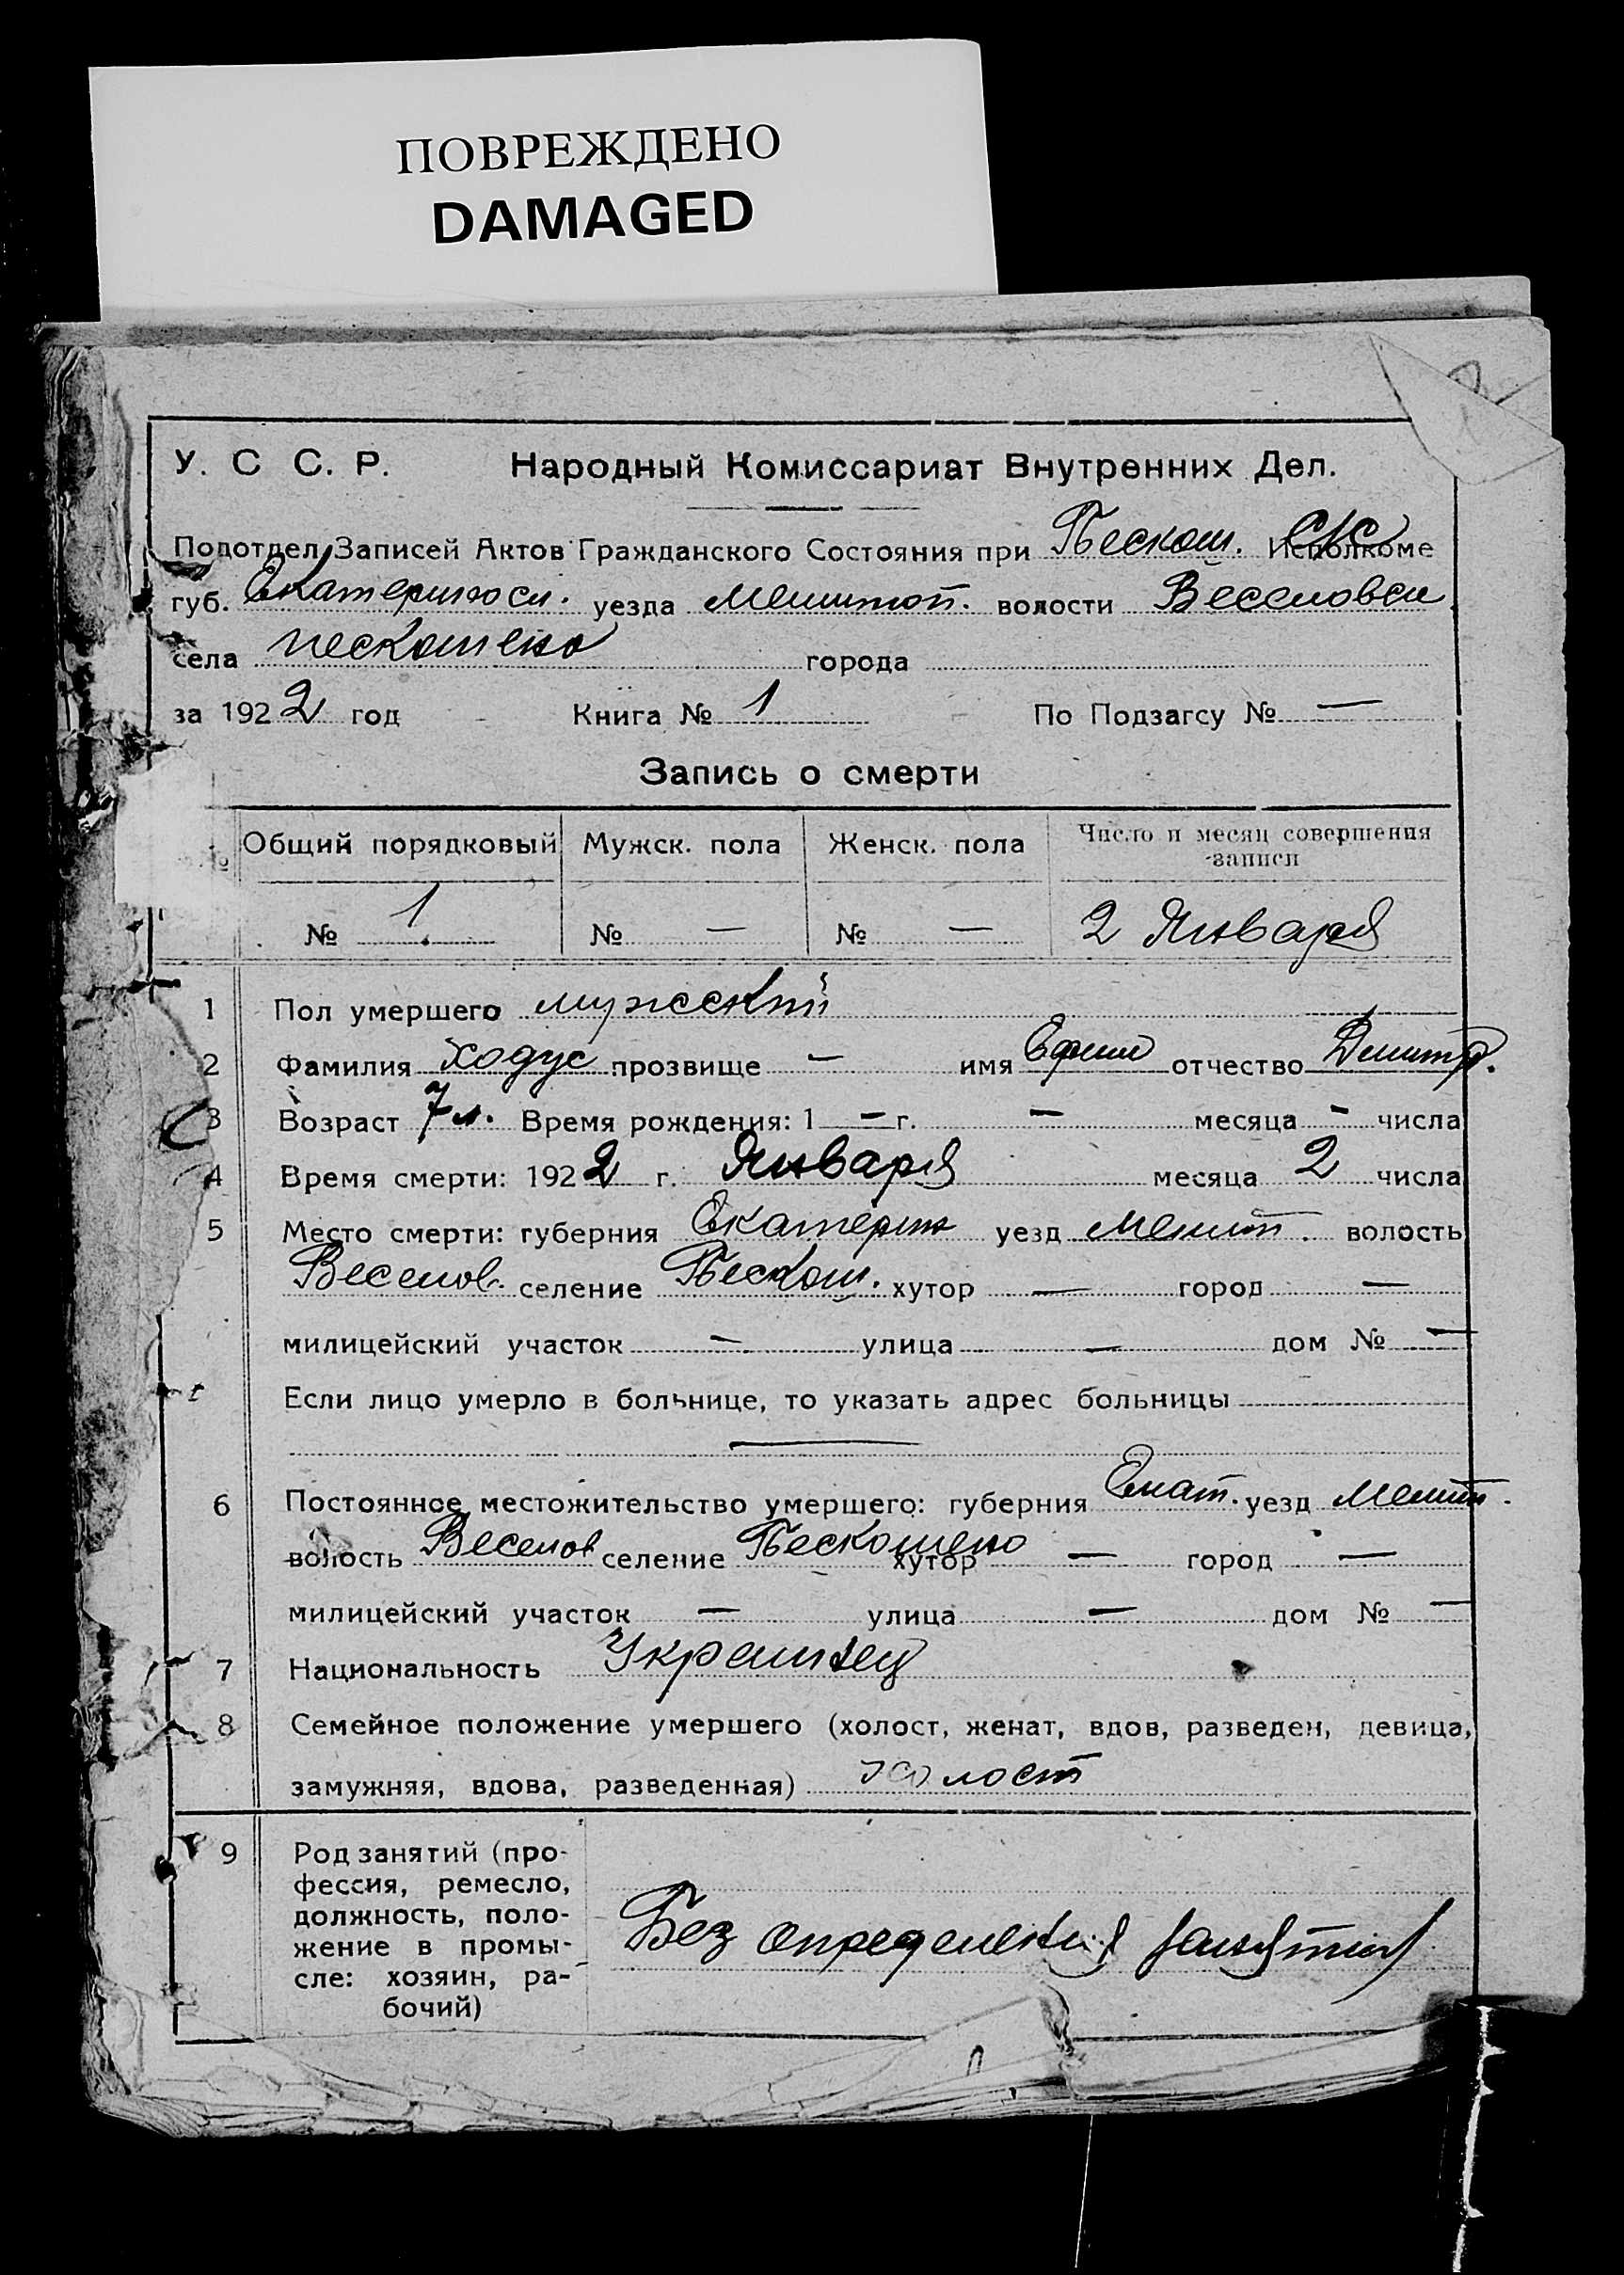 ПОВРЕЖДЕНО
DAMAGED
У. С С. Р. Народный Комиссариат Внутренних Дел.
Подотдел Записей Актов Гражданского Состояния при Пескош. С/С Исполкоме
губ. Екатериносл. уезда Мелитоп. волости Веселовск
села Пескошено города
за 1922 год Книга № 1 По Подзагсу № —
Запись о смерти
№ Общий порядковый Мужск. пола Женск. пола Число и месяц совершения записи
№ 1 № — № — 2 Января
1 Пол умершего мужский
2 Фамилия Ходус прозвище — имя Ефим отчество Дмитр.
3 Возраст 7 л. Время рождения: 1 — г. — месяца - числа
4 Время смерти: 1922 г. Января месяца 2 числа
5 Место смерти: губерния Екатерин уезд Мелит. волость
Веселов. селение Пескош. хутор — город —
милицейский участок — улица — дом № —
Если лицо умерло в больнице, то указать адрес больницы
—
6 Постоянное местожительство умершего: губерния Екат. уезд Мелит.
волость Веселов селение Пескошено хутор — город —
милицейский участок — улица — дом № —
7 Национальность Украинец
8 Семейное положение умершего (холост, женат, вдов, разведен, девица,
замужняя, вдова, разведенная) холост
9 Род занятий (про-
фессия, ремесло,
должность, поло-
жение в промы-
сле: хозяин, ра-
бочий)
Без определения занятия